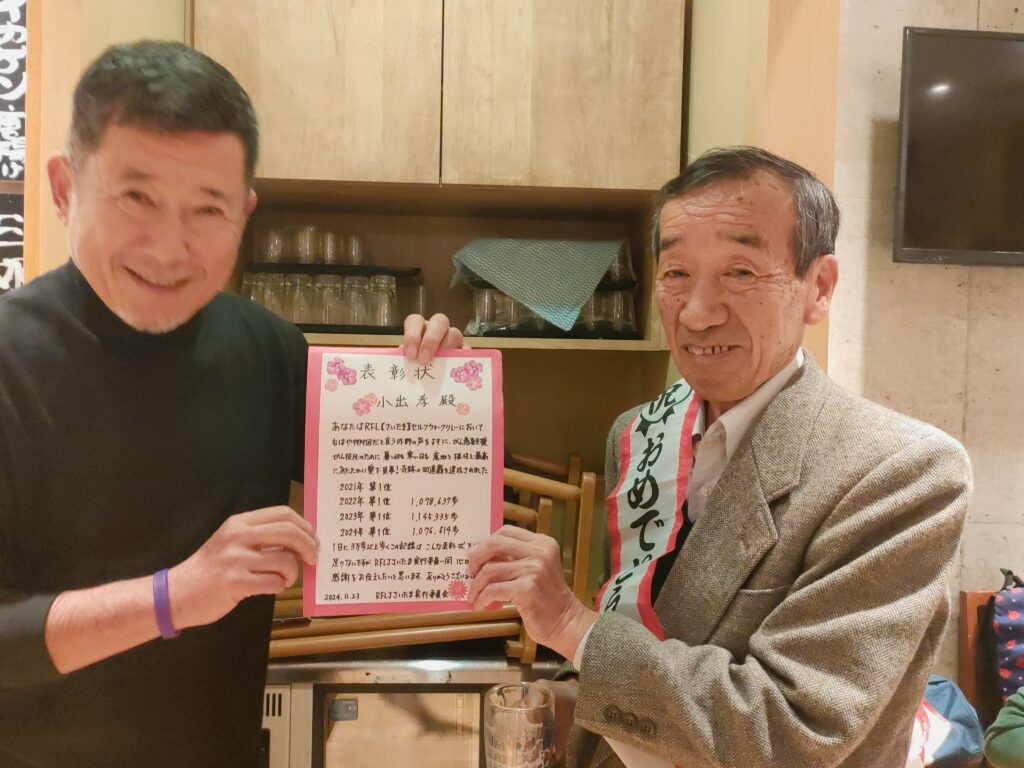 表彰状
小出 孝 殿
あなたはRFL【さいたま】セルフウォークリレーにおいて
もはや何州国だと言う外野の声をよそに、がん患者支援
がん征圧のために 暑い日も 寒い日も 意地と 根性と 最高
にあたたかい 愛で 見事！奇跡の四連覇を達成されました
2021年 第1位
2022年 第1位 1,078,637歩
2023年 第1位 1,145,335歩
2024年 第1位 1,076,614歩
1日に3万歩以上歩くこの記録は こんな表彰
足りないですが RFLJさいたま実行委員一同 心か
感謝をお伝えしたいと思います。ありがとうござい
2024.11.23 RFLJさいたま実行委員会
祝 おめでとう
生ビール